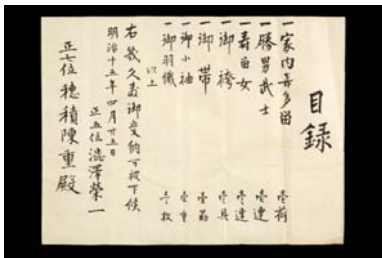 目録
一家内喜多留 壱荷
一勝男武士 壱連
一寿留女 壱連
一御袴 壱具
一御帯 壱筋
一御小袖 壱重
一御羽織 壱枚
以上
右幾久敷御受納可被下候
明治十五年四月廿五日
正五位澁澤榮一
正七位穂積陳重殿